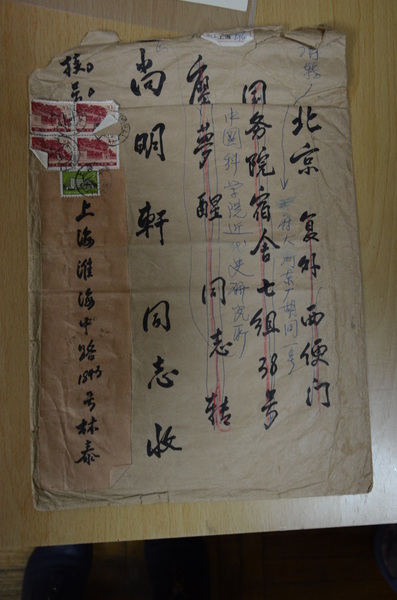 北京复外西便门
王府大街东厂胡同一号
国务院宿舍七组38号
中国科学院近代史研究所
廖夢醒同志转
尚明轩同志收
挂号
上海淮海中路1843号林泰